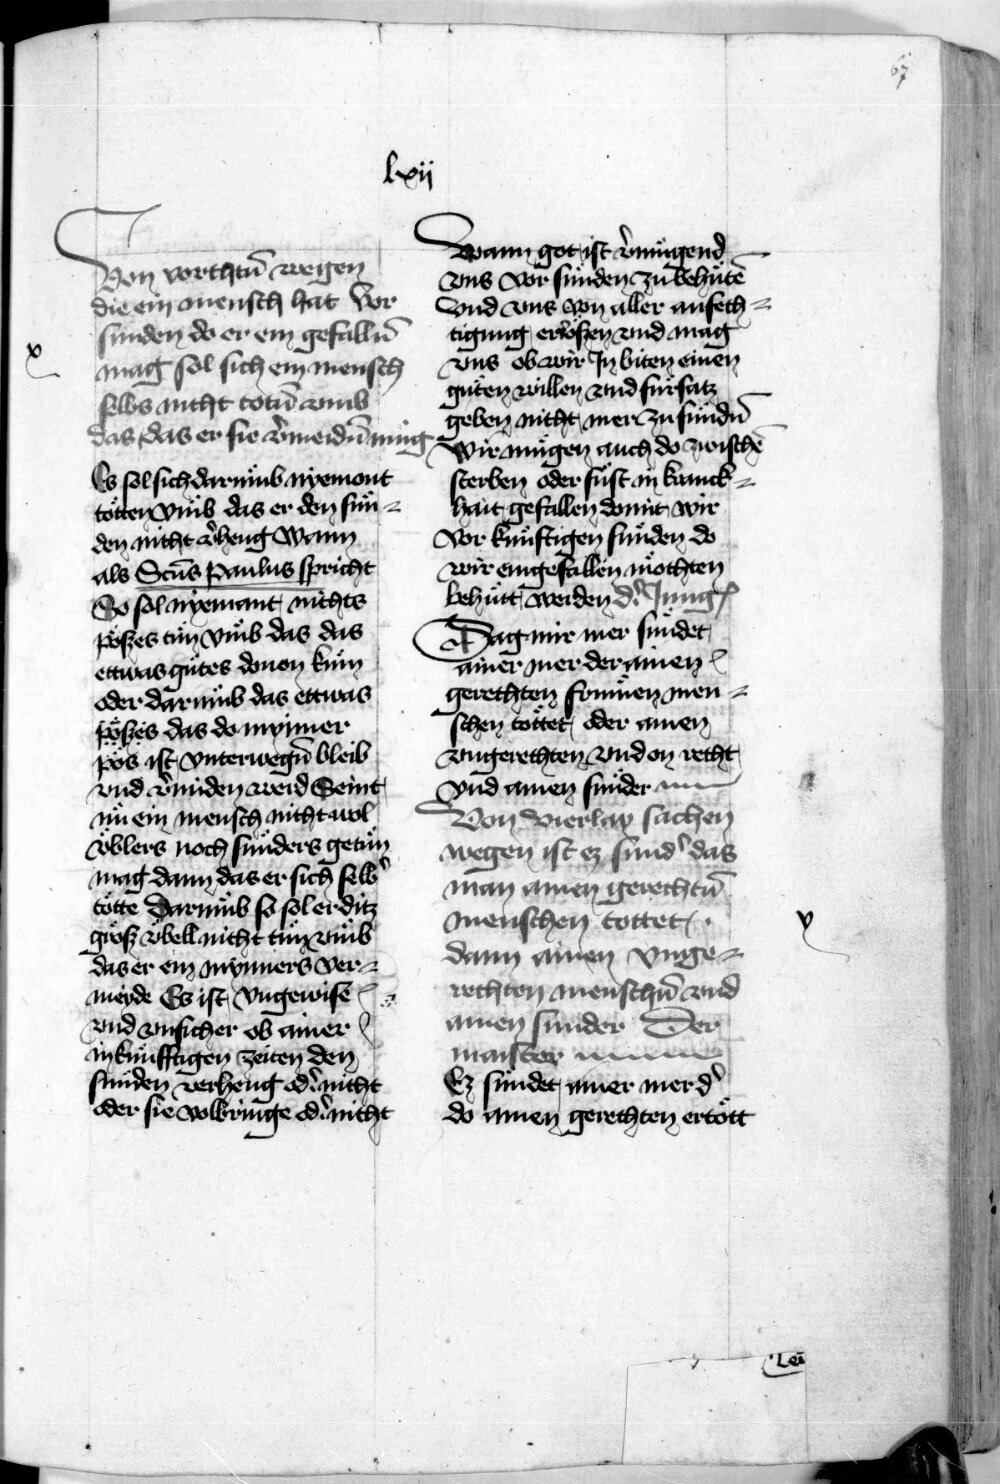 67
lxii
Von vorchtn̄ wegen
die ein mensch hat Vor
sunden do er ein gefallen̄
mag sol sich ein mensch
selbs nicht totn̄ vmb
das das er sie v̓meidn̄ müg
Es sol sich darumb nyemant
tötten vmb das er den sün⸗
den nicht v̓heng Wann
als Sct̄us Paulus spricht
So sol nyemant nichts
pößes tün vmb das das
ettwas gütes douon küm
oder darumb das ettwas
pößes das do mynner
pös ist vnterwegn̄ bleib
vnd v̓miden werd Seint
nü ein mensch nicht wol
v̈blers noch sünders getün
mag dann das er sich selb̓
tötte Darumb so sol er ditz
groß v̈bell nicht tün vmb
das er ein mynners ver⸗
meyde Es ist vngewise
vnd vnsicher ob ainer
in künfftigen zeiten den
sünden verheng od̓ nicht
oder sie volbringe od̓ nicht
Wann got ist v̓mügend
vns vor sünden zu behüte̅
Vnd vns von aller anfech⸗
tigung erlößen vnd mag
vns ob wir In biten einen
güten willen vnd fürsatz
geben nicht mer zu sündn̄
Wir mügen auch do zwische̅
sterben oder süst in kranck⸗
hait gefallen domit wir
Vor künftigen sünden do
wir eingefallen möchten
behütt werden d̓ Jung̓
Sag mir mer sündet
ainer mer der ainen
gerechten frummen men⸗
schen töttet oder ainen
vngerechten vnd on recht
vnd ainen sünder
Von vierlay sachen
wegen ist ez sünd̓ das
man ainen gerechtn̄
menschen tottet
dann ainen vnge⸗
rechten menschn̄ vnd
ainen sunder Der
maister
Ez sündet ainer mer d̓
do ainen gerechten ertött
v
v